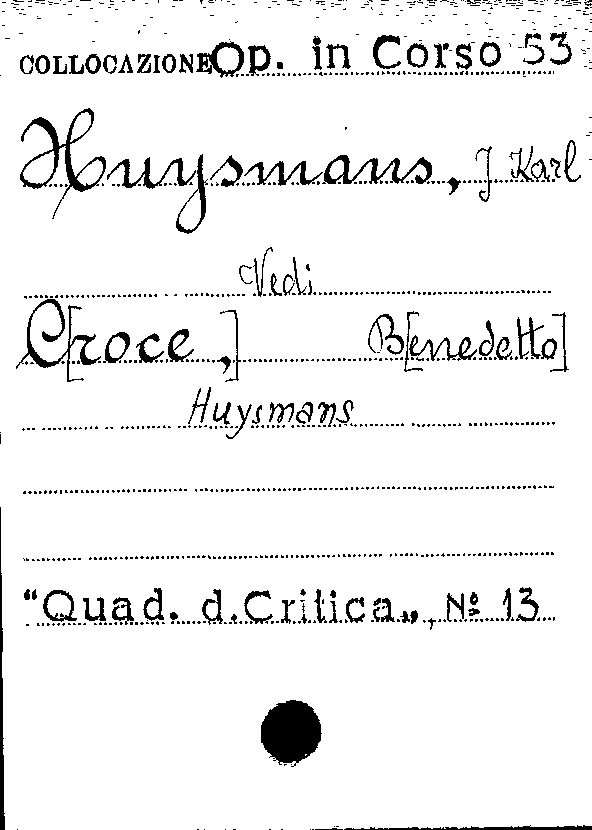 COLLOCAZIONE Op. in Corso 53
Huysmans, J Karl
Vedi
C[roce,] B[enedetto]
Huysmans
"Quad. d. Critica„, Nº 13